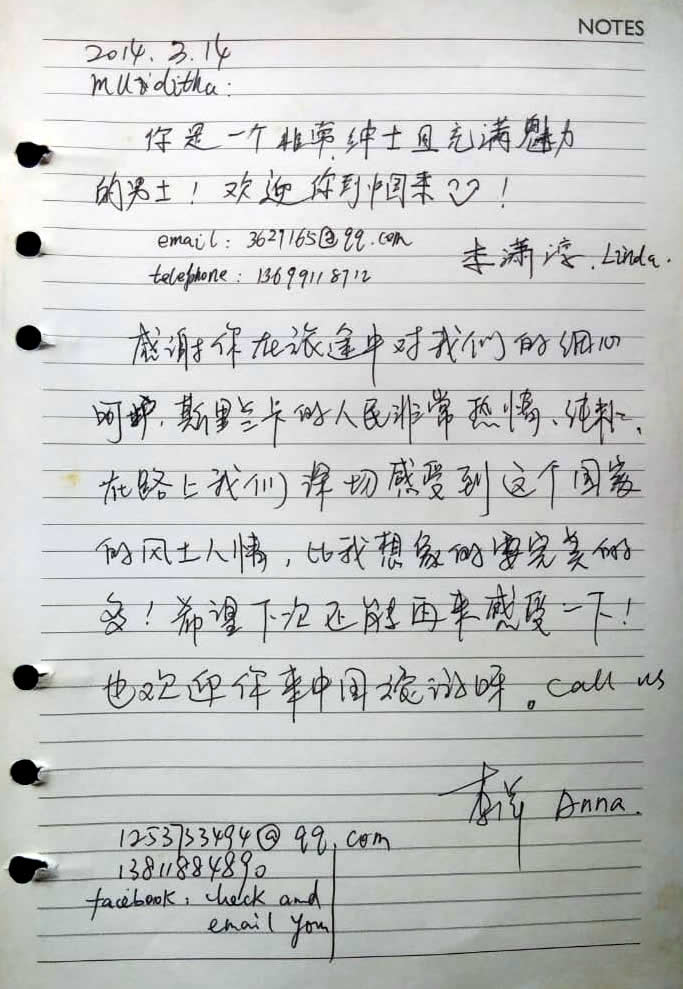 NOTES
2014.3.14
Muditha:
你是一个非常绅士且充满魅力
的男士！欢迎你到中国来！
email: 3627165@qq.com
李潇 Linda.
telephone: 13699118712
感谢你在旅途中对我们的细心
呵护，斯里兰卡的人民非常热情、纯朴，
在路上我们深切感受到这个国家
的风土人情，比我想象的要完美的
多！希望下次还能再来感受一下！
也欢迎你来中国旅游呀。Call us
李 Anna.
1253733494@qq.com
13811884890
facebook: check and
email you